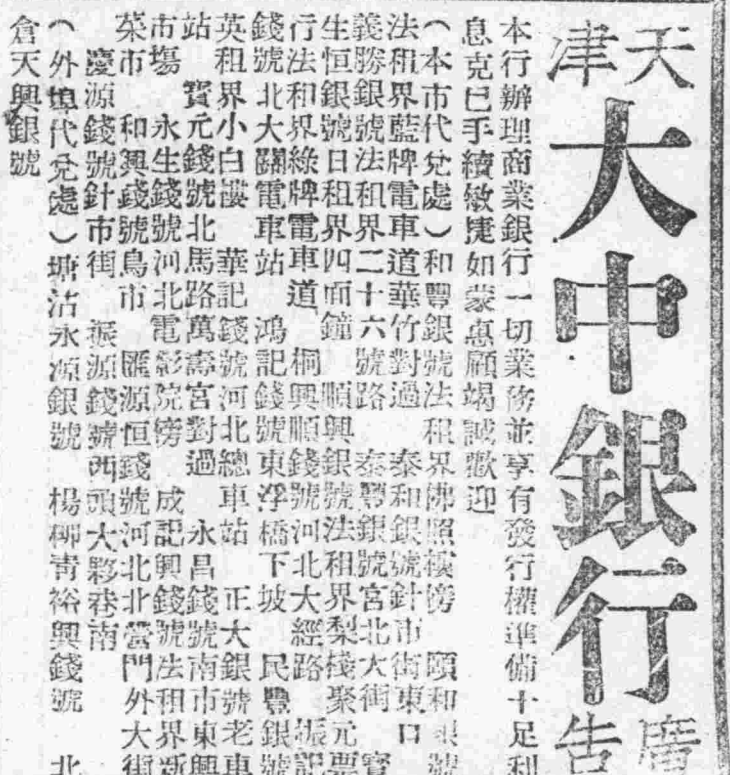 天津
大中銀行
廣告
本行辦理商業銀行一切業務並享有發行權準備十足利
息克已手續敏捷如蒙惠顧竭誠歡迎
（本市代兌處）和豐銀號法租界佛照樓傍　頤和銀號
法租界藍牌電車道華竹對過　泰和銀號針市街東口
義勝銀號法租界二十六號路　泰豐銀號宮北大街　寶
生恒銀號日租界四面鐘　順興銀號法租界梨棧聚元票
行法租界綠牌電車道　桐興順錢號河北大經路　振記
錢號北大關電車站　鴻記錢號東浮橋下坡　民豐銀號
英租界小白樓　華記錢號河北總車站　正大銀號老車
站　寶元錢號北馬路萬壽宮對過　永昌錢號南市東興
市塲　永生錢號河北電影院傍　成記興錢號法租界新
菜市　和興錢號鳥市　匯源恒錢號河北北營門外大街
慶源錢號針市街　振源錢號西頭大夥巷南
（外埠代兌處）塘沽永源銀號　楊柳青裕興錢號　北
倉天興銀號